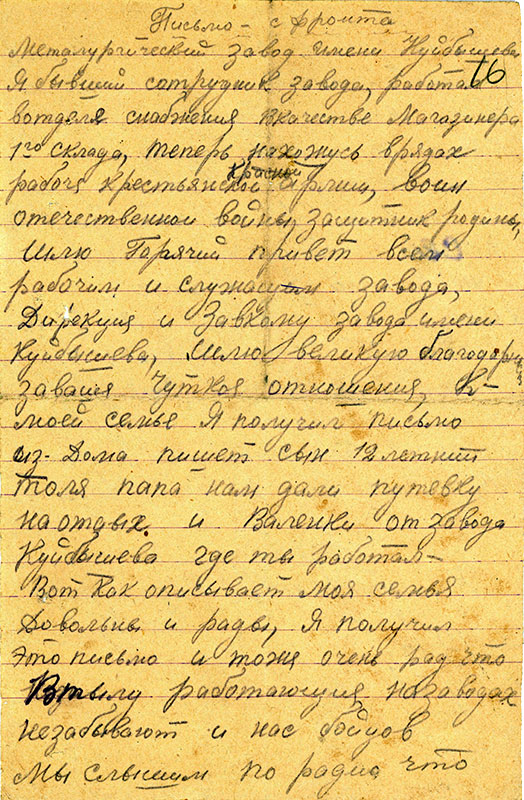 Письмо - с фронта
Металургический завод имени Куйбышева
76
Я бывший сотрудник завода, работал
вотделя снабжения вкачестве Магазинера
1го склада, теперь нахожусь врядах
Красной
рабоче крестьянской армии, воин
отечественной войны, защитник родины,
шлю Горячий привет всем
рабочим и служащим завода,
Дирекция и Завкому завода имени
Куйбышева, шлю великую благодарн
заваше чуткоя отношения, к-
моей семье Я получил письмо
из-Дома пишет сын 12 летний
Толя папа нам дали путевку
наотдых и Валенки от завода
Куйбышева где ты работал-
Вот Как описывает моя семья
Довольны и рады, Я получил
это письмо и тожя очень рад что
Втылу работающия назаводах
незабывают и нас бойцов
Мы слышим по радио что